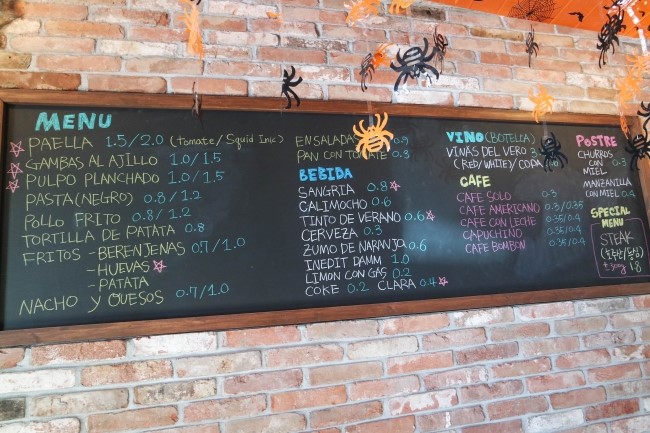 MENU
PAELLA 1.5/2.0 (tomate/Squid Inic)
GAMBAS AL AJILLO 1.0/1.5
PULPO PLANCHADO 1.0/1.5
PASTA(NEGRO) 0.8/1.2
POLLO FRITO 0.8/1.2
TORTILLA DE PATATA 0.8
FRITOS - BERENJENAS 0.7/1.0
- HUEVAS
- PATATA
NACHO y QUESOS 0.7/1.0
ENSALADAS
PAN CON TOMATE 0.3
BEBIDA
SANGRIA 0.8
CALIMOCHO 0.6
TINTO DE VERANO 0.6
CERVEZA 0.3
ZUMO DE NARANJO 0.6
INEDIT DAMM 1.0
LIMON CON GAS 0.2
COKE 0.2 CLARA 0.4
VINO (BOTELIA)
VINAS DEL VERO 3
(RED/WHITE)/CODA
CAFE
CAFE SOLO 0.3
CAFE AMERICANO 0.3/0.35
CAFE CON LECHE 0.35/0.4
CAPUCHINO 0.35/0.4
CAFE BOMBON 0.35/0.4
POSTRE
CHURROS CON MIEL 0.3
MANZANILLA CON MIEL 0.4
SPECIAL MENU
STEAK
1.8